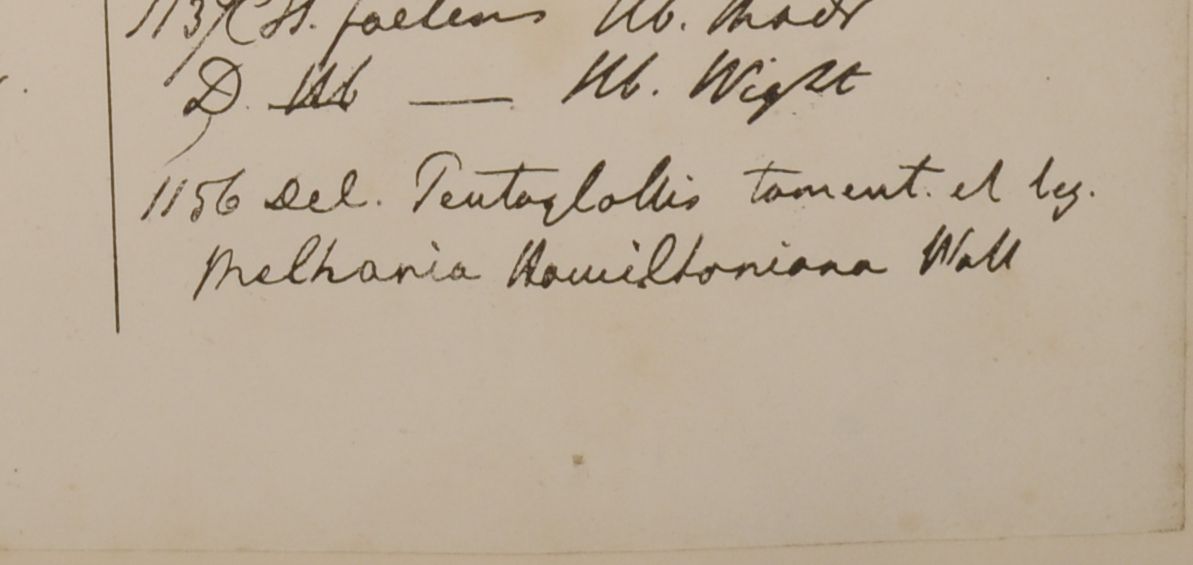 1137 C St. foetens Hb. Madr
D. Hb — Hb. Wight
1156 Del. Pentaglottis toment. et leg.
Melhania Hamiltoniana Wall